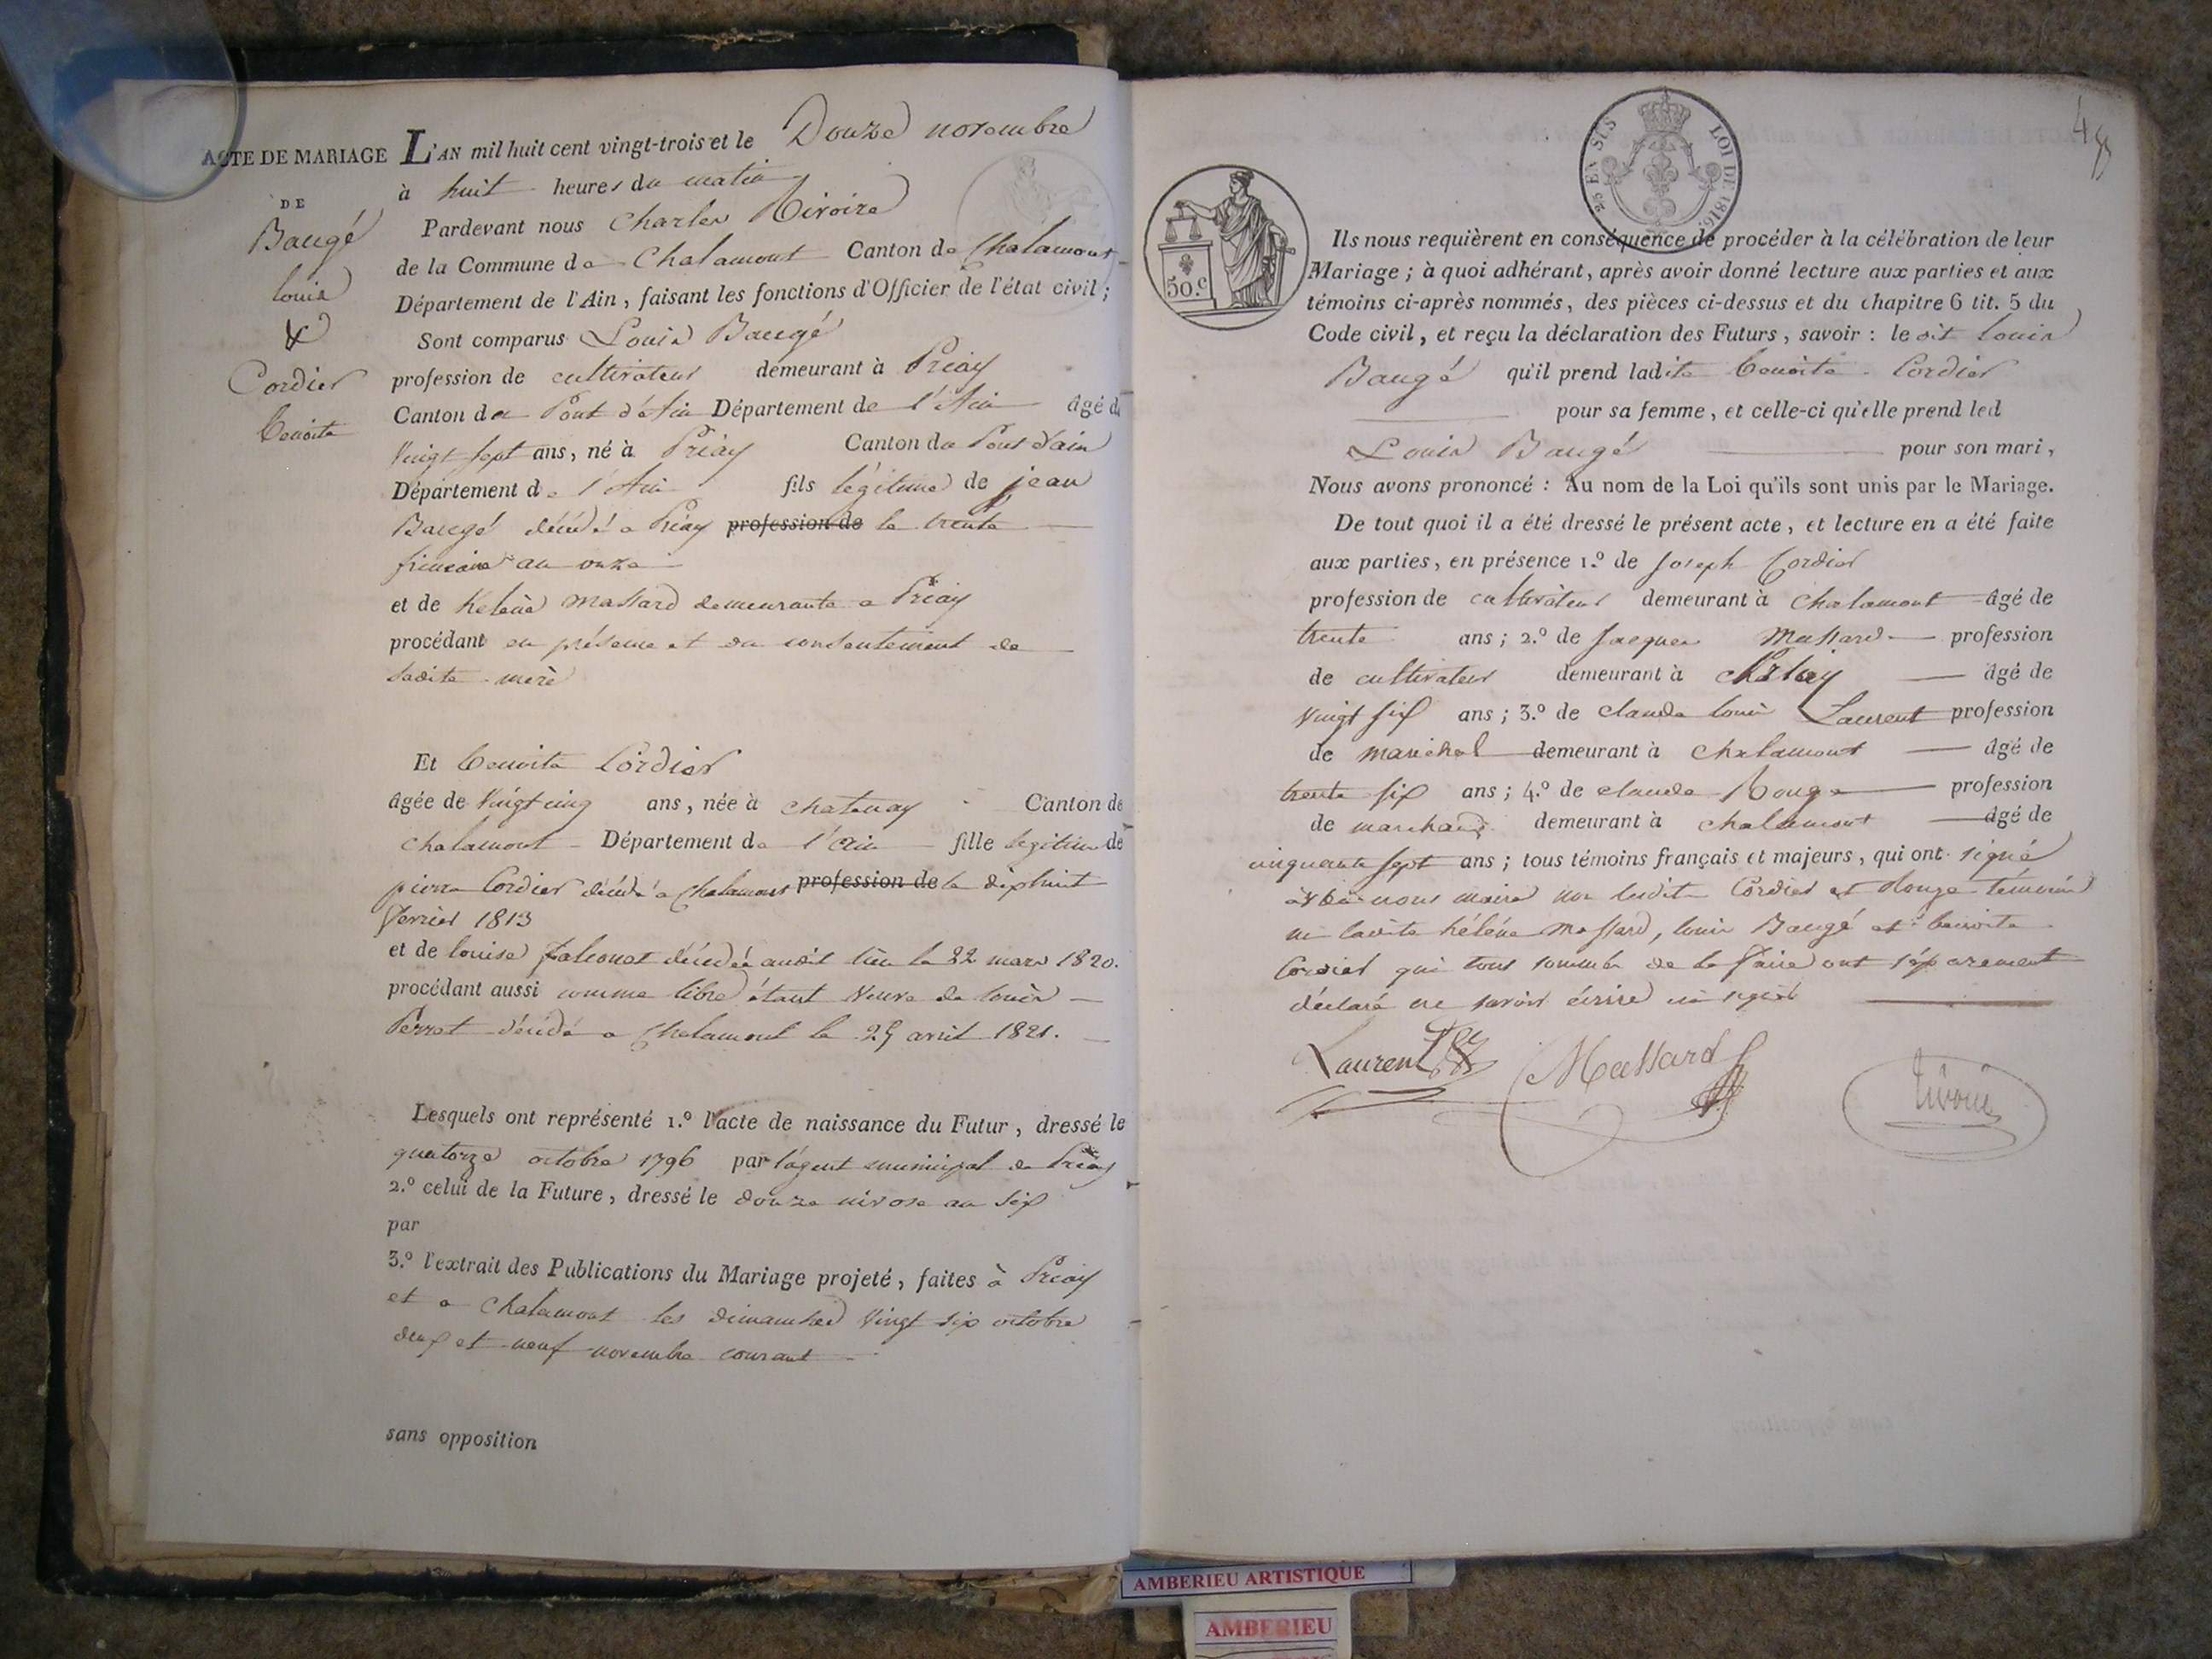 ACTE DE MARIAGE
DE
Baugé
louis
&
Cordier
benoite
L'AN mil huit cent vingt-trois et le Douze novembre
à huit heures du matin
Pardevant nous Charles
de la Commune de Chalamont Canton de Chalamont
Département de l'Ain, faisant les fonctions d'Officier de l'état civil;
Sont comparus Louis Baugé
profession de cultivateur demeurant à Priay
Canton de Pont d'Ain Département de l'Ain âgé d
Vingt sept ans, né à Priay Canton de Pont d'ain
Département de l'Ain fils légitime de jean
Baugé décédé a Priay profession de le trente
frimaire an onze
et de heléne Massard demeurante a Priay
procédant en présence et du consentement de
ladite mere
Et benoite Cordier
âgée de Vingt cinq ans, née à chatenay Canton de
chalamont Département de l'Ain fille legitime de
pierre Cordier décédé a Chalamont profession de le dixhuit
fevrier 1813
et de louise falconet décédée audit lieu le 22 mars 1820.
procédant aussi comme libre étant Veuve de louis
Perret décédé a Chalamont le 25 avril 1821.
Lesquels ont représenté 1.º l'acte de naissance du Futur, dressé le
quatorze octobre 1796 par l'agent municipal de Priay
2.º celui de la Future, dressé le douze nivose an six
par
3.º l'extrait des Publications du Mariage projeté, faites à Priay
et a Chalamont les dimanches Vingt six octobre
deux et neuf novembre courant
sans opposition
25 EN SUS LOI DE 1816.
50.c
Ils nous requièrent en conséquence de procéder à la célébration de leur
Mariage; à quoi adhérant, après avoir donné lecture aux parties et aux
témoins ci-après nommés, des pièces ci-dessus et du chapitre 6 tit. 5 du
Code civil, et reçu la déclaration des Futurs, savoir: le dit louis
Baugé qu'il prend ladite benoite Cordier
pour sa femme, et celle-ci qu'elle prend led
Louis Baugé pour son mari,
Nous avons prononcé: Au nom de la Loi qu'ils sont unis par le Mariage.
De tout quoi il a été dressé le présent acte, et lecture en a été faite
aux parties, en présence 1.º de Joseph Cordier
profession de cultivateur demeurant à chalamont âgé de
trente ans; 2.º de Jacques Massard profession
de cultivateur demeurant à âgé de
Vingt six ans; 3.º de claude louis Laurent profession
de marechal demeurant à chalamont âgé de
trente six ans; 4.º de claude Rouge profession
de marchand demeurant à chalamont âgé de
cinquante sept ans; tous témoins français et majeurs, qui ont signé
avec nous maire non lesdits Cordier et Rouge témoins
ni ladite hélène Massard, louis Baugé et benoite
Cordier qui tous sommés de le faire ont séparement
déclaré ne savoir écrire ni signer
Laurent Massard
AMBERIEU ARTISTIQUE
AMBERIEU